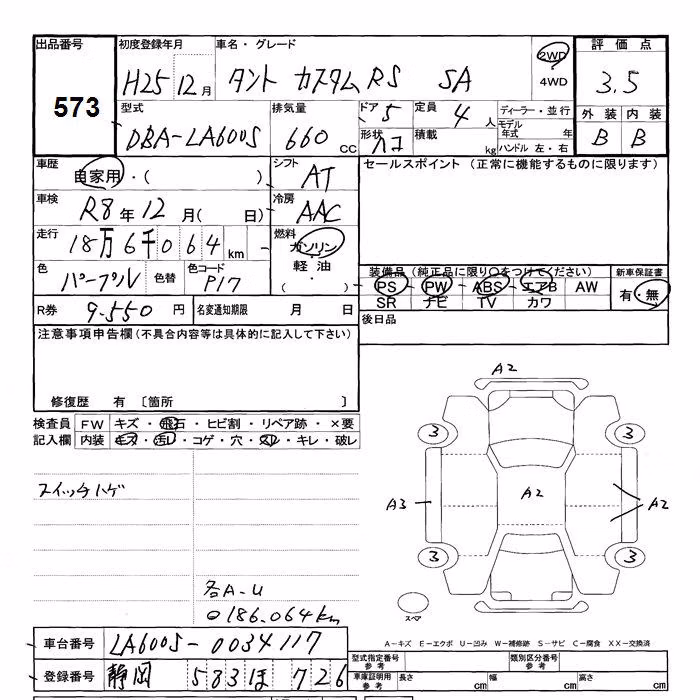 出品番号 初度登録年月 車名・グレード 評価点
573 H25 12月 タント カスタムRS SA 2WD 4WD 3.5
型式 排気量 ドア 5 定員 4人 ディーラー・並行 外装 内装
DBA-LA600S 660 CC 形状 積載 kg モデル年式 年 ハンドル 左・右 B B
車歴 自家用・( ) シフト AT セールスポイント (正常に機能するものに限ります)
車検 R8年12月( 日) 冷房 AAC
走行 18万6千064km 燃料 ガソリン 軽油 ・( )
色 パープル 色替 色コード P17 装備品(純正品に限り○をつけてください) 新車保証書
PS PW ABS エアB AW 有・無
SR ナビ TV カワ
R券 9.550円 名変通知期限 月 日 後日品
注意事項申告欄(不具合内容等は具体的に記入して下さい)
修復歴 有 〔箇所 〕
検査員 FW キズ・飛石・ヒビ割・リペア跡・×要
記入欄 内装 キズ・汚レ・コゲ・穴・スレ・キレ・破レ
A2
3 3
スイッチハゲ
A3 A2 A2
3 3
各A-U
186.064km
スペア
A-キズ E-エクボ U-凹み W-補修跡 S-サビ C-腐食 XX-交換済
車台番号 LA600S-0034117 型式指定番号 参考 類別区分番号 参考
登録番号 静岡 583 ほ 726 車庫証明用 参考 長さ cm 幅 cm 高さ cm